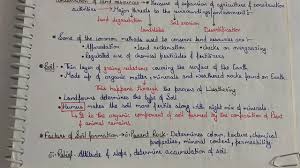 Conservation of land resources → Because of expansion of agriculture & construction
activities → Major threats to the surrounding environment :-
Land degradation Soil erosion
Landslides Desertification
• Some of the common methods used to conserve land resources are -
• Afforestation • Land reclamation • checks on overgrazing
• Regulated use of chemical fertilisers and pesticides
• Soil • Thin layer of grainy substance covering the surface of the Earth
• Made up of organic matter, minerals and weathered rocks found on Earth
This happens through the process of Weathering
• Landforms determines the type of Soil
• Humus makes the soil more fertile along with right mix of minerals.
It is the organic component of soil formed by the decomposition of Plant
& animal remains
• Factors of Soil formation → Parent Rock - Determines colour, texture, chemical
properties, mineral content, permeability.
Relief - Altitude & slope, determine accumulation of soil